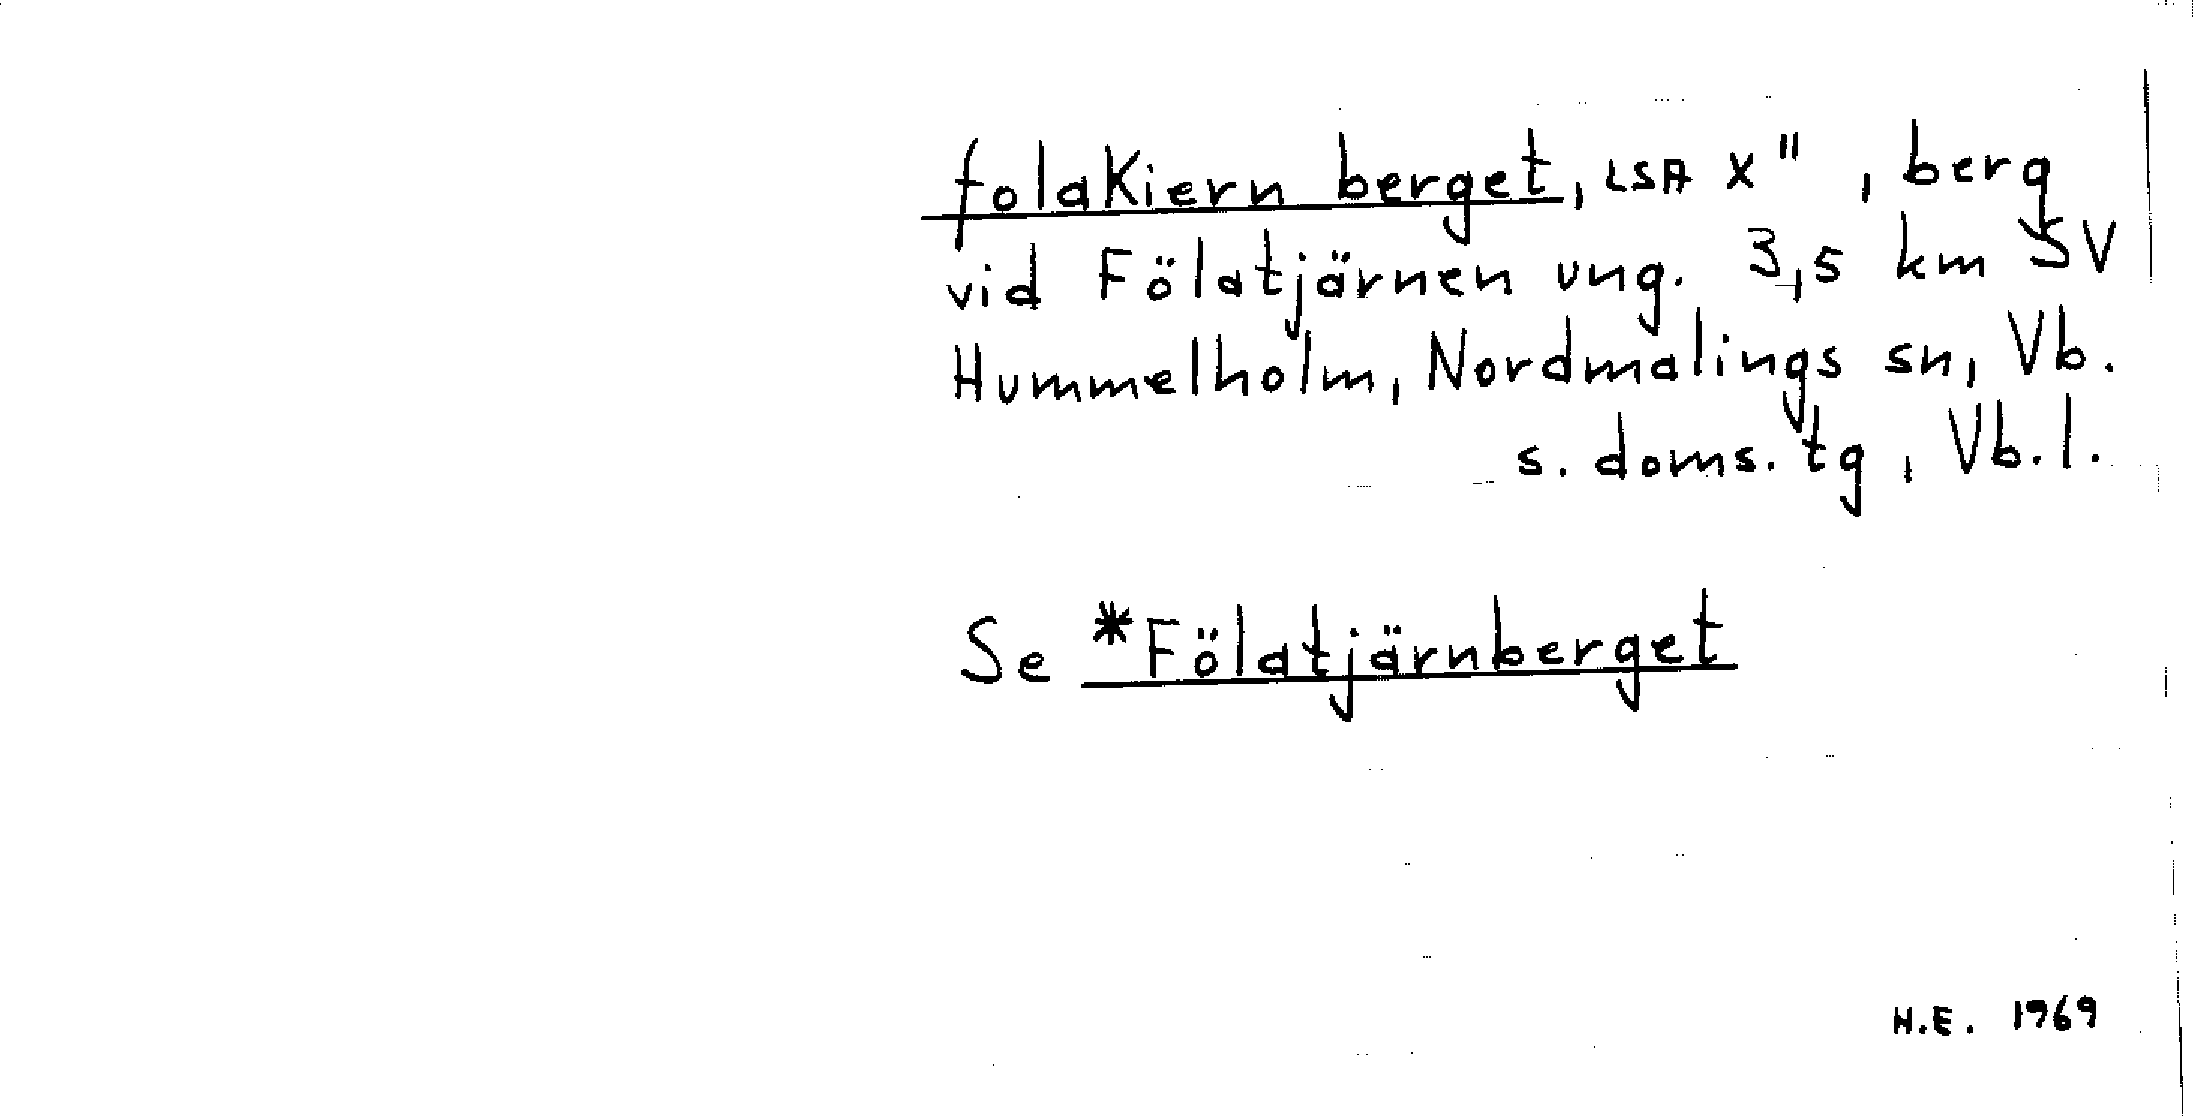 folaKiern berget, LSA X", berg
vid Fölatjärnen ung. 3,5 km SV
Hummelholm, Nordmalings sn, Vb.
s. doms. tg, Vb.l.
Se *Fölatjärnberget
H.E. 1969